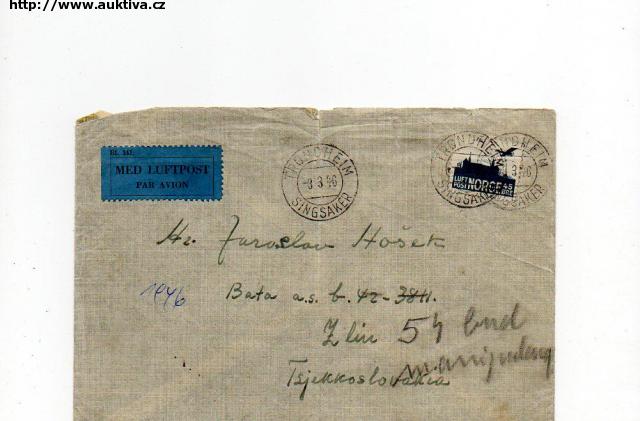 http://www.auktiva.cz
BL. 341.
MED LUFTPOST
PAR AVION
TRONDHEIM
-8 3.56
SINGSAKER
TRONDHEIM
SINGSAKER
LUFT
POST NORGE 45
ØRE
Hr. Jaroslav Hošek
1946
Bata a.s. b. 42-3811.
Zlin 54
Tsjekkoslovakia